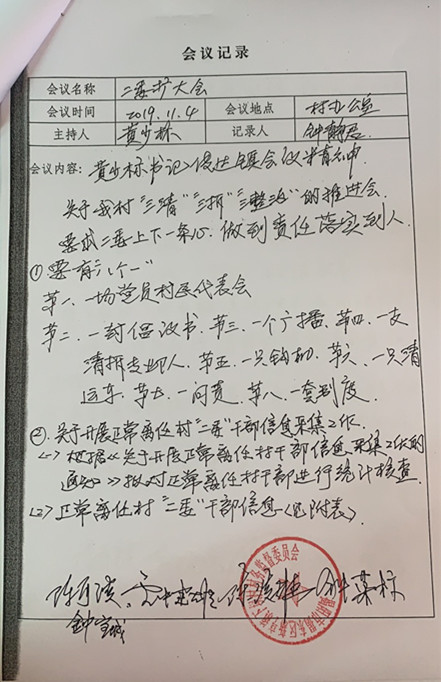 会议记录
会议名称 二委扩大会
会议时间 2019.11.4 会议地点 村办公室
主持人 黄少标 记录人
会议内容: 黄少标书记传达镇会议精神
关于我村“三清”“三拆”“三整治”的推进会
要求二委上下一条心,做到责任落实到人.
①要有“八个一”
第一、一场党员村民代表会
第二、一封倡议书、第三、一个广播、第四、一支
清拆专业人、第五、一只钩机、第六、一只清
运车、第七、一问责、第八、一套制度、
②、关于开展正常离任村“二委”干部信息采集工作、
<1>根据《关于开展正常离任村干部信息采集工作的
通知》拟对正常离任村干部进行统计核查
<2>正常离任村“二委”干部信息(见附表)、